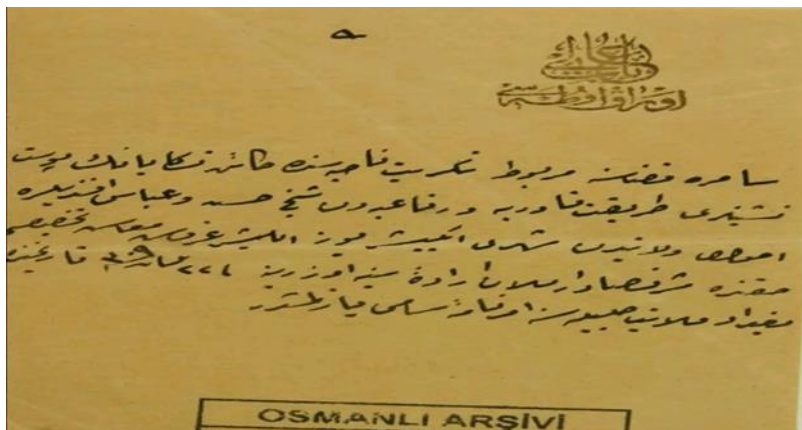 باب عالی
اوراق اوطه سی
سامره قضاسنه مربوط تكریت ناحیه سنده كائن تكایانك پوست
نشینلری طریقت قادریه و رفاعیه دن شیخ حسن و عباس افندیلره
شهری ایكیشر یوز الیشر غروش معاش تخصیصی
حقنده شرفصادر اولان اراده سنیه اوزرینه تاریخنده
بغداد ولایت جلیله سنه سامی یازلمشدر
OSMANLI ARŞİVİ